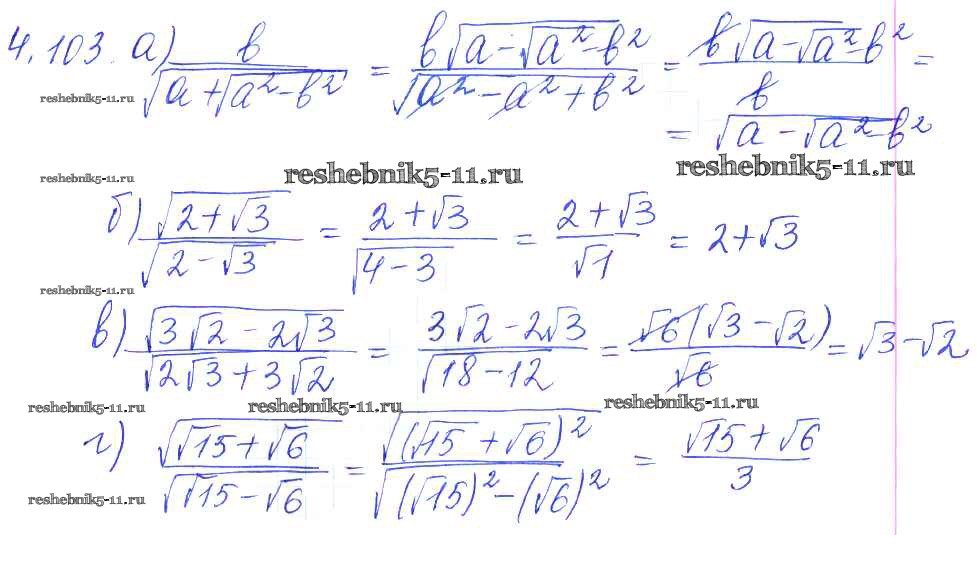 4.103. а) b/√(a+√(a²-b²)) = b√(a-√(a²-b²))/√(a²-a²+b²) = b√(a-√(a²-b²))/b =
reshebnik5-11.ru
= √(a-√(a²-b²))
reshebnik5-11.ru reshebnik5-11.ru reshebnik5-11.ru
б) √(2+√3)/√(2-√3) = (2+√3)/√(4-3) = (2+√3)/√1 = 2+√3
reshebnik5-11.ru
в) √(3√2-2√3)/√(2√3+3√2) = (3√2-2√3)/√(18-12) = √6(√3-√2)/√6 = √3-√2
reshebnik5-11.ru reshebnik5-11.ru reshebnik5-11.ru
г) √(√15+√6)/√(√15-√6) = √((√15+√6)²)/√((√15)²-(√6)²) = (√15+√6)/3
reshebnik5-11.ru